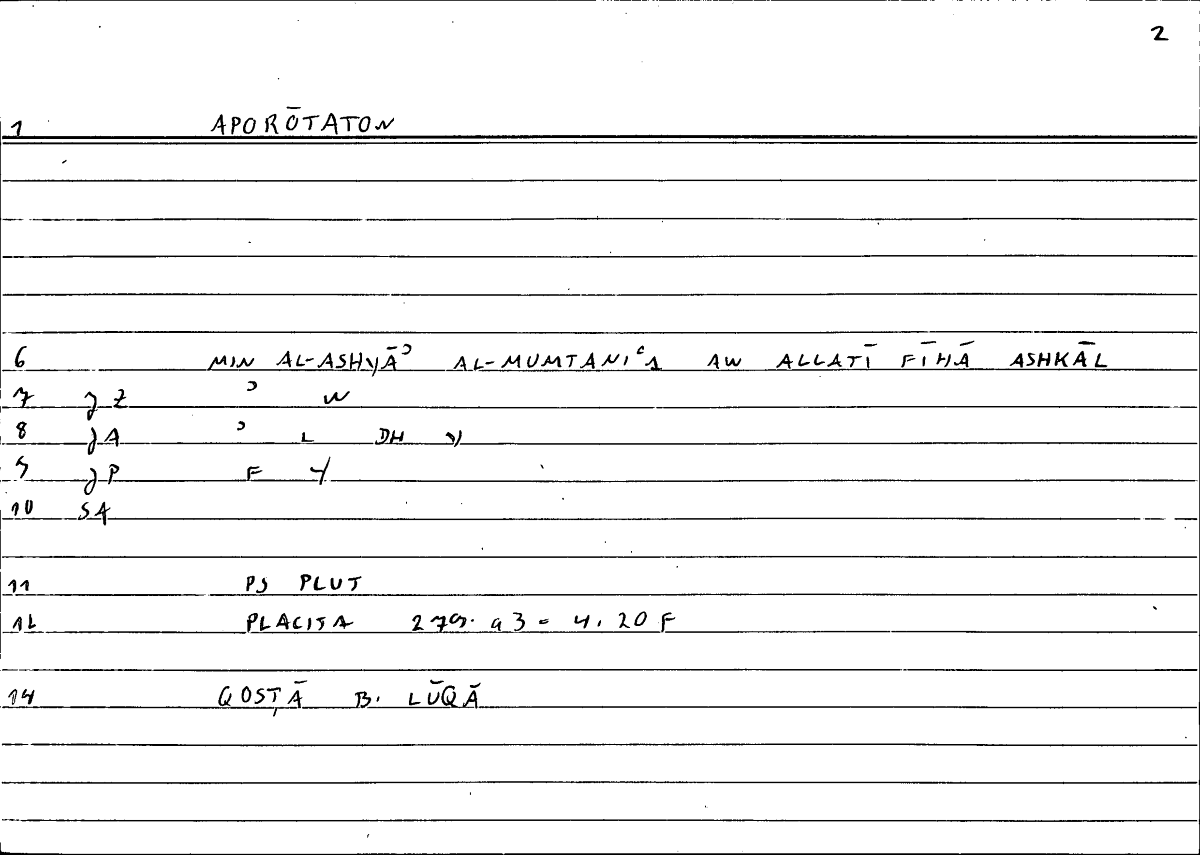 2
1 APORŌTATON
6 MIN AL-ASHYĀʾ AL-MUMTANIʿA AW ALLATĪ FĪHĀ ASHKĀL
7 ʾ W
8 ʾ L DH Y
9 F Y
10 SA
11 PS PLUT
12 PLACITA 279. a3 = 4. 20 F
14 QOSṬĀ B. LŪQĀ